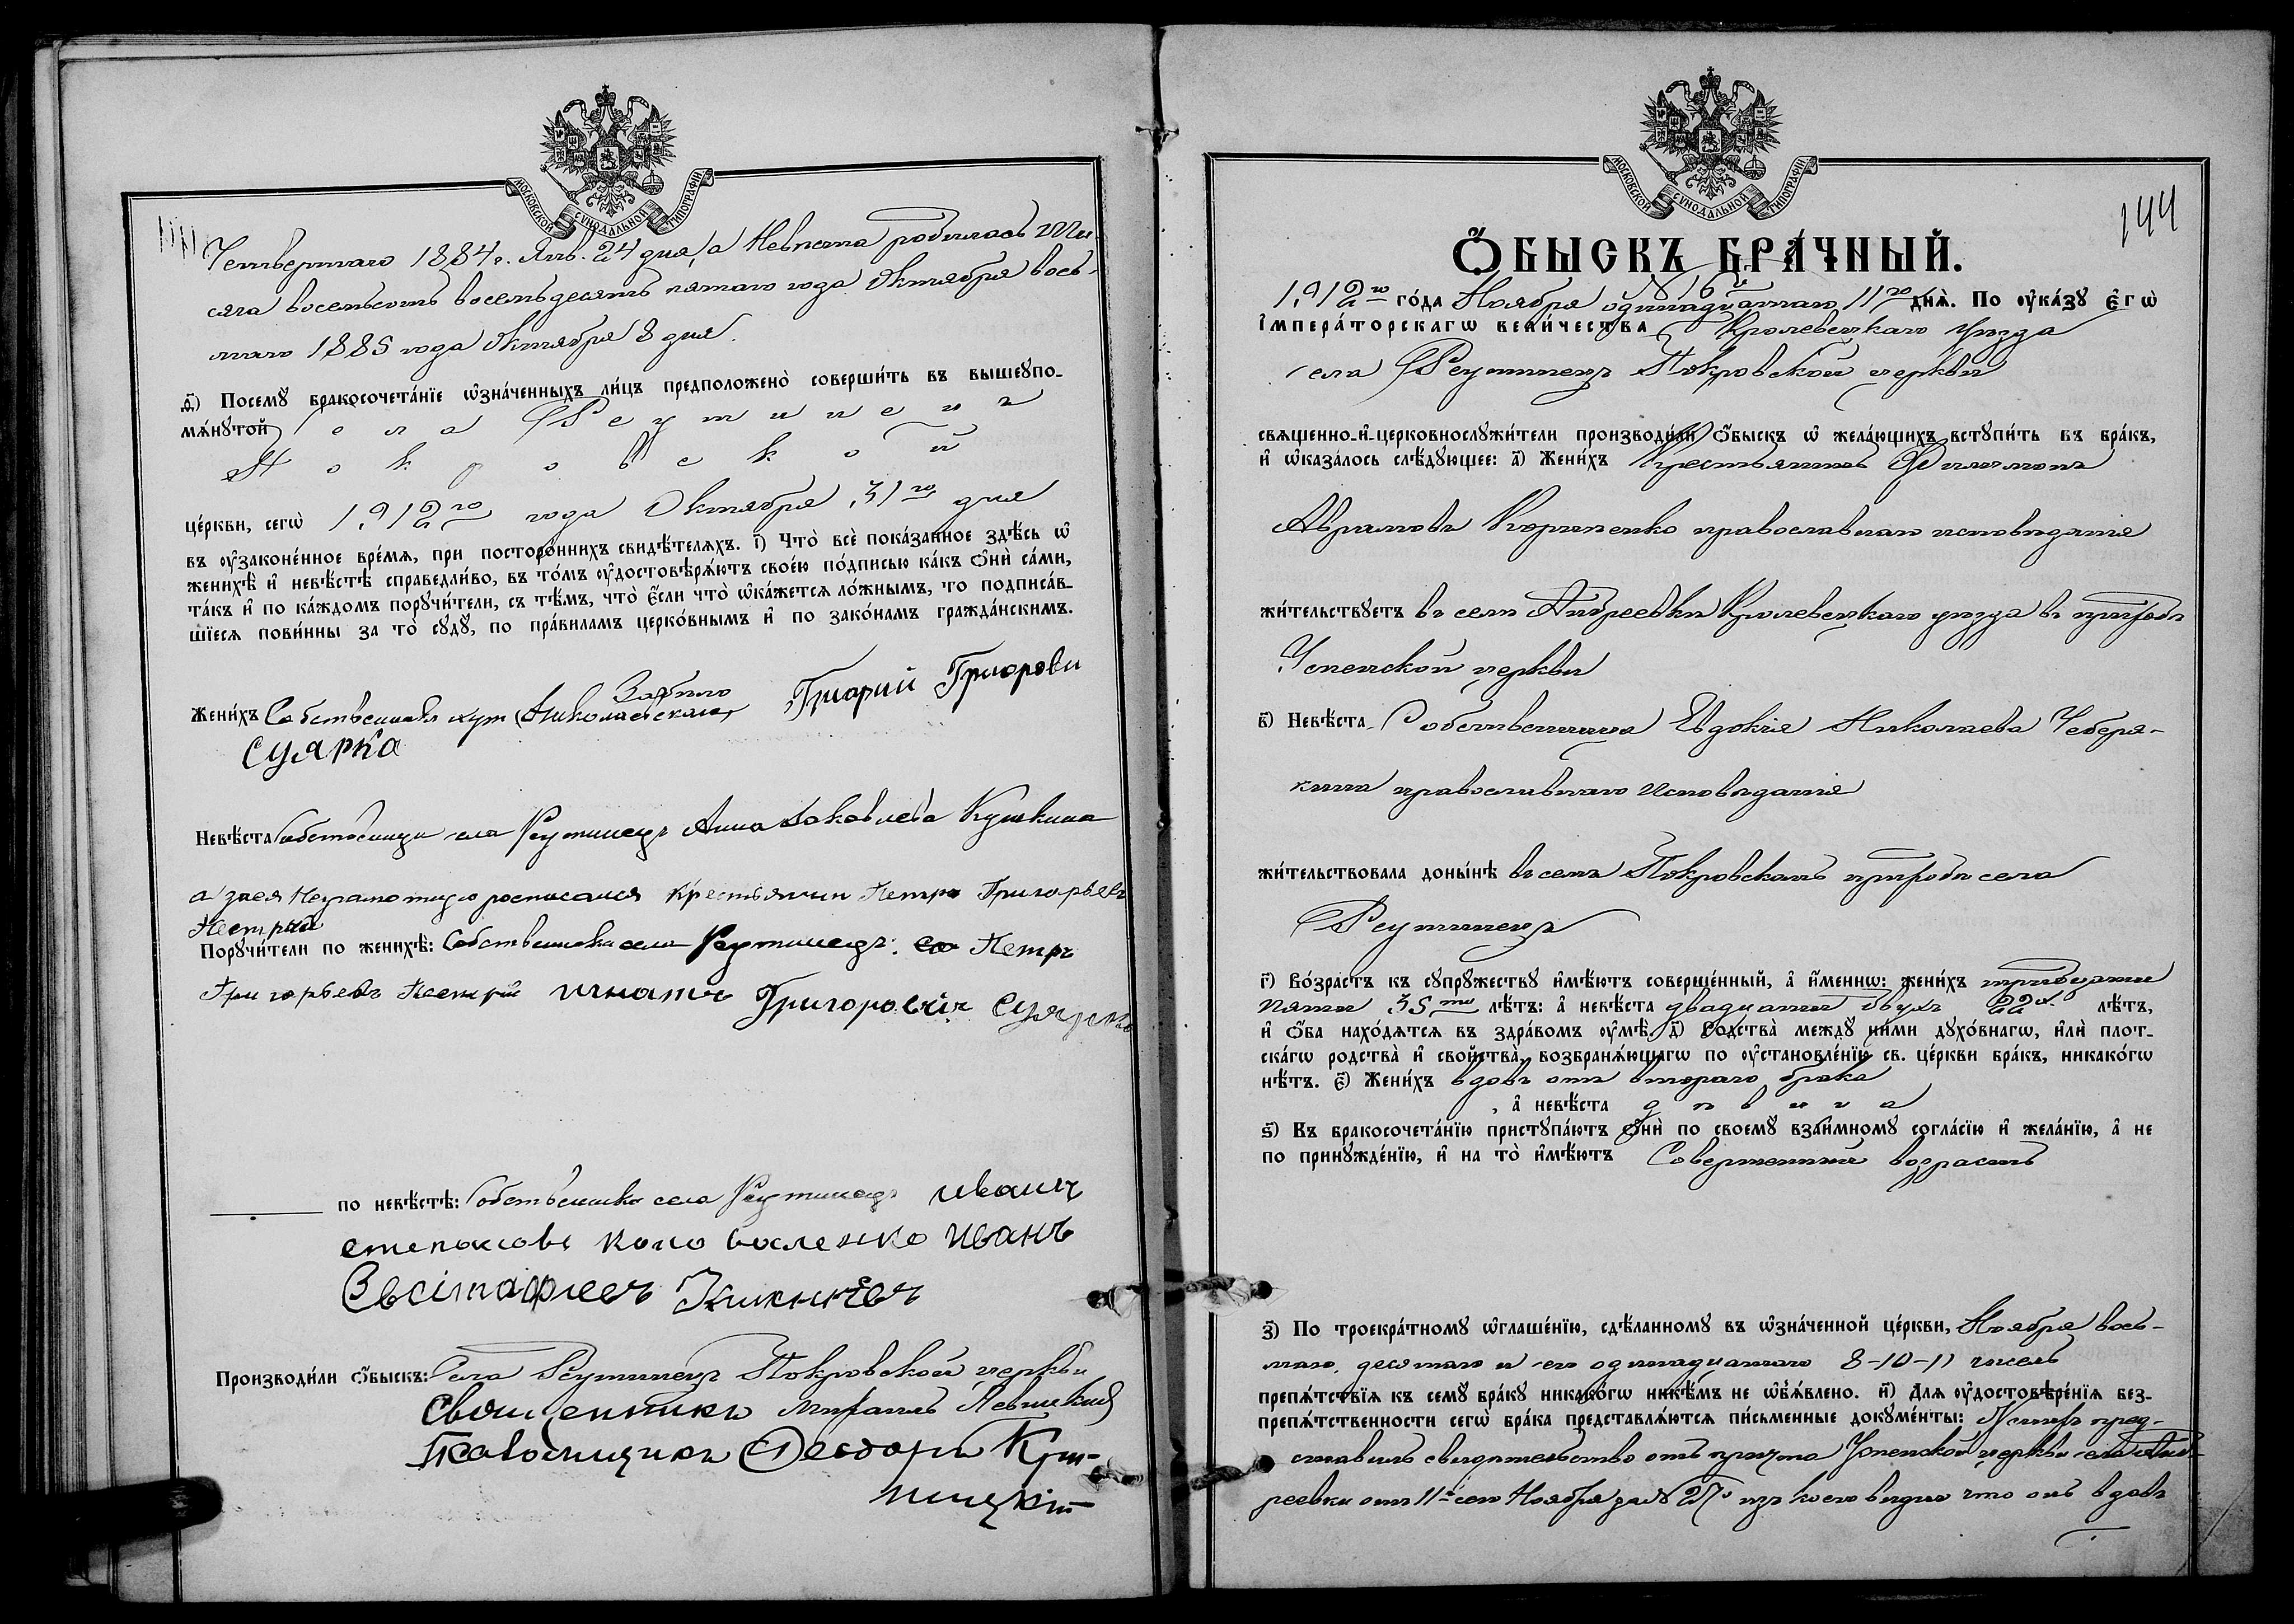 МОСКОВСКОЙ СѴНОДАЛЬНОЙ ТИПОГРАФІИ
Четвертаго 1884 г. Янв. 24 дня, а Невѣста родилась Ты-
сяча восемьсотъ восемьдесятъ пятаго года Октября вось-
маго 1885 года Октября 8 дня.
д҃і) Посемꙋ бракосочета́нїе ѡ҆зна́ченныхъ ли́цъ предположено̀ соверши́ть въ вышеꙋпо-
мѧ́нꙋтой Села Реутинецъ
Покровской
це́ркви, сегѡ̀ 1912го года Октября 31го дня
въ ᲂу҆законе́нное вре́мѧ, при посторо́ннихъ свидѣ́телѧхъ. і҃) Что̀ всѐ пока́занное здѣ́сь ѡ҆
женихѣ̀ и҆ невѣ́стѣ справедли́во, въ то́мъ ᲂу҆достовѣрѧ́ютъ свое́ю по́дписью ка́къ ѻ҆нѝ са́ми,
та́къ и҆ по ка́ждомъ порꙋчи́тели, съ тѣ́мъ, что̀ є҆́сли что̀ ѡ҆ка́жетсѧ ло́жнымъ, то подписа́в-
шїесѧ пови́нны за то̀ сꙋдꙋ̀, по пра́виламъ церко́внымъ и҆ по зако́намъ гражда́нскимъ.
Жени́хъ Собственникъ хут. Николаевскаго Григорій Григорови
Суярка
Невѣ́ста Собственница села Реутинецъ Анна Яковлева Кушкина
а за нея Неграмотную росписался Крестьянин Петръ Григорьевъ
Пестрый
Порꙋчи́тели по женихѣ̀: Собственники села Реутинецъ: Петръ
Григорьевъ Пестрый игнатъ Григоровіч Суярко
по невѣ́стѣ: Собственники села Реутинецъ иванъ
степановъ Коноваленко Иванъ
Евстафиевъ
Производи́ли ѻ҆́быскъ: Села Реутинецъ Покровской церкви
Священникъ Михаилъ Левицкій
Псаломщикъ Ѳеодоръ Кри-
ницкій
МОСКОВСКОЙ СѴНОДАЛЬНОЙ ТИПОГРАФІИ
144
Ѻ҆́БЫСКЪ БРА́ЧНЫЙ.
1912го го́да Ноября одинадцатаго 11го днѧ̀. По ᲂу҆ка́зꙋ є҆гѡ̀
і҆мпера́торскагѡ вели́чества Кролевецкаго уѣзда
села Реутинецъ Покровской церкви
свѧщенно-и҆-церковнослꙋжи́тели производи́ли ѻ҆́быскъ ѡ҆ жела́ющихъ встꙋпи́ть въ бра́къ,
и҆ ѡ҆каза́лось слѣ́дꙋющее: а҃) Жени́хъ Крестьянинъ Филимонъ
Аврамовъ Кориненко православнаго исповѣданія
жи́тельствꙋетъ въ селѣ Андреевки Кролевецкаго уѣзда въ приходѣ
Успенской церкви
в҃) Невѣ́ста Собственница Евдокія Николаева Чебря-
кина православнаго исповѣданія
жи́тельствовала доны́нѣ въ семъ Покровскомъ приходѣ села
Реутинецъ
г҃) Во́зрастъ къ сꙋпрꙋ́жествꙋ и҆мѣ́ютъ соверше́нный, а҆ и҆́меннѡ: жени́хъ тридцати
пяти 35ти лѣ́тъ: а҆ невѣ́ста двадцати двухъ 22х лѣ́тъ,
и҆ ѻ҆́ба нахо́дѧтсѧ въ здра́вомъ ᲂу҆мѣ̀. д҃) Родства̀ междꙋ̀ ни́ми дꙋхо́внагѡ, и҆лѝ плот-
ска́гѡ родства̀ и҆ сво́йства, возбранѧ́ющагѡ по ᲂу҆становле́нїю св. це́ркви бра́къ, никако́гѡ
нѣ́тъ. є҃) Жени́хъ вдовъ отъ втораго брака
, а҆ невѣ́ста дѣвица
ѕ҃) Въ бракосочета́нїю пристꙋпа́ютъ ѻ҆нѝ по своемꙋ̀ взаи́мномꙋ согла́сїю и҆ жела́нїю, а҆ не
по принꙋжде́нїю, и҆ на то̀ и҆мѣ́ютъ Совершенный возрастъ
з҃) По троекра́тномꙋ ѡ҆глаше́нїю, сдѣ́ланномꙋ въ ѡ҆зна́ченной це́ркви, Ноября вось-
маго, десятаго и сего одинадцатаго 8-10-11 числъ
препѧ́тствїѧ къ семꙋ̀ бра́кꙋ никако́гѡ никѣ́мъ не ѡ҆б̾ѧ́влено. и҃) Длѧ ᲂу҆достовѣре́нїѧ без-
препѧ́тственности сегѡ̀ бра́ка представлѧ́ютсѧ пи́сьменные докꙋме́нты: Женихъ пред-
ставилъ свидѣтельство отъ причта Успенской церкви села Анд-
реевки отъ 11 сего Ноября за № 27 изъ коего видно что онъ вдовъ